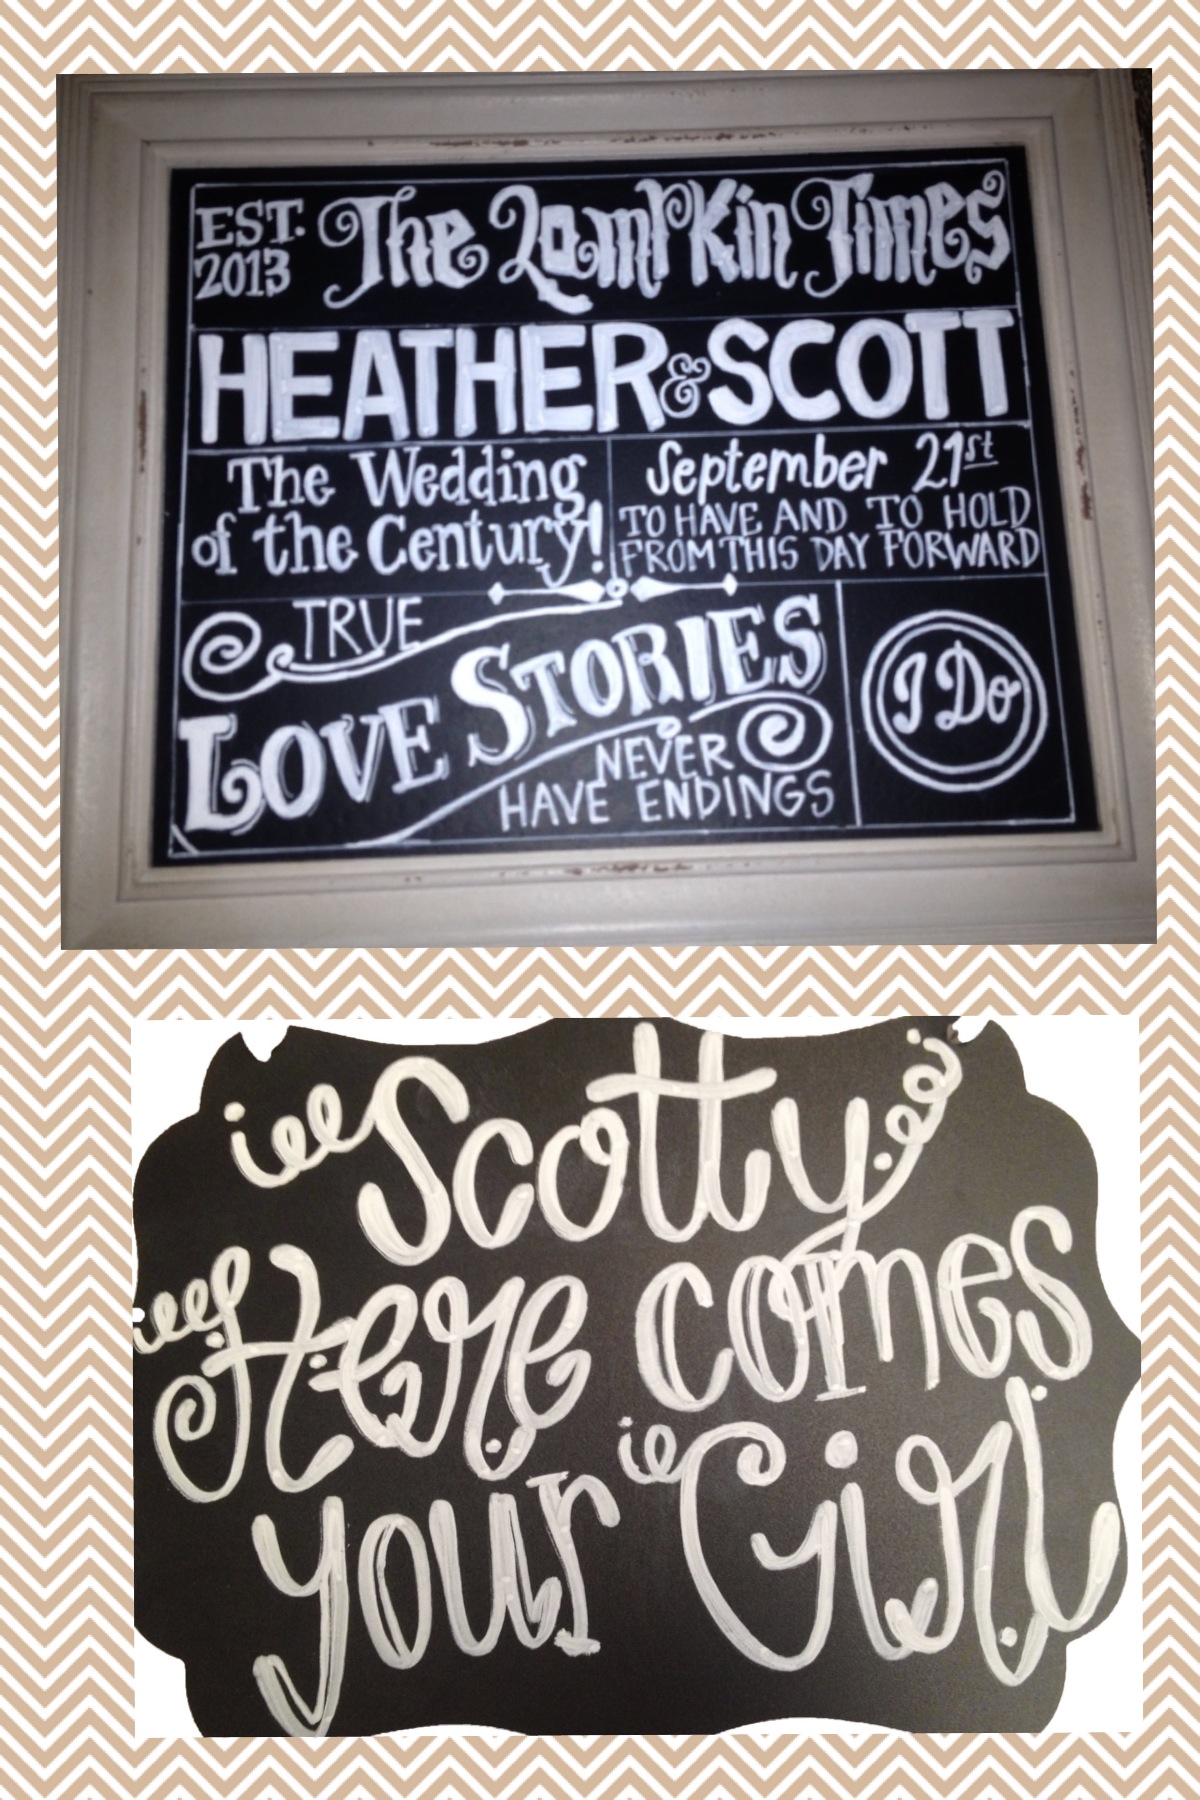 EST. 2013
The Lampkin Times
HEATHER & SCOTT
The Wedding
of the Century!
September 21st
TO HAVE AND TO HOLD
FROM THIS DAY FORWARD
TRUE
LOVE STORIES
NEVER
HAVE ENDINGS
I Do
Scotty
Here comes
your Girl